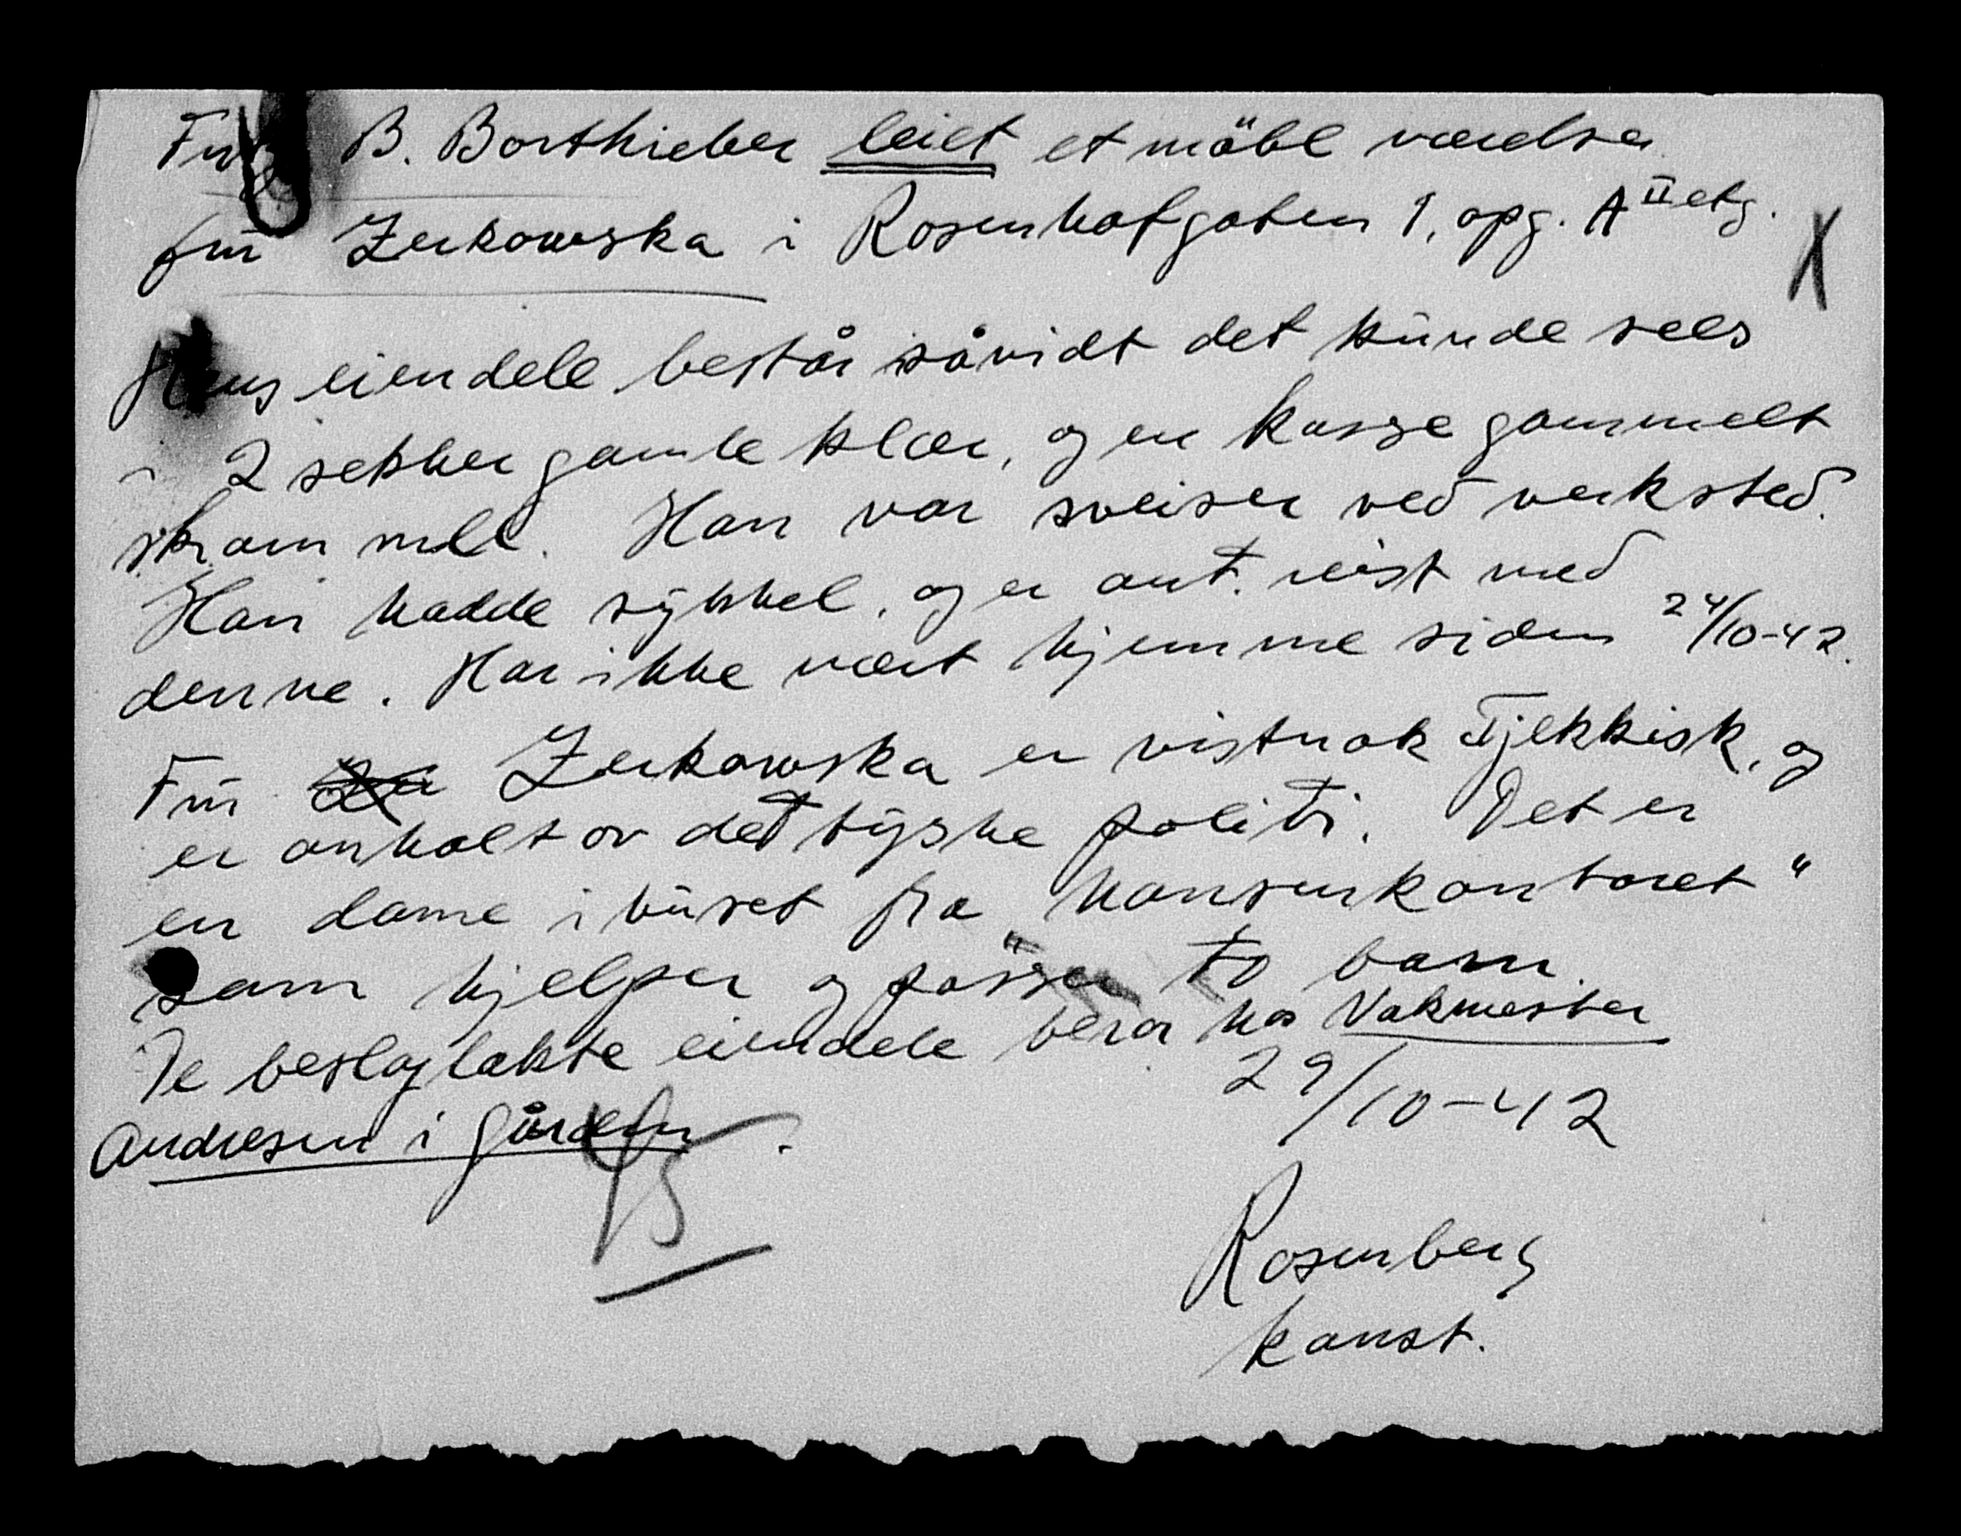 B. Borthieber leiet et möbl værelse
frü Zerkowska i Rosenhofgaten 1, opg. A II etg.
X
Hans eiendele består såvidt det künde sees
i 2 sekker gamle klær, og en kasse gammelt
skrammel. Han var sveiser ved verksted.
Han hadde sykkel, og er ant. reist med
denne. Har ikke vært hjemme siden 24/10-42.
Frü Zerkowska er vistnok Tjekkisk, og
er anholt av det tyske politi. Det er
en dame i hüset fra "Hansenkontoret"
som hjelper og passer to barn.
De beslaglakte eiendele beror hos Vakmester
Andresen i gården.
29/10-42
Rosenberg
konst.